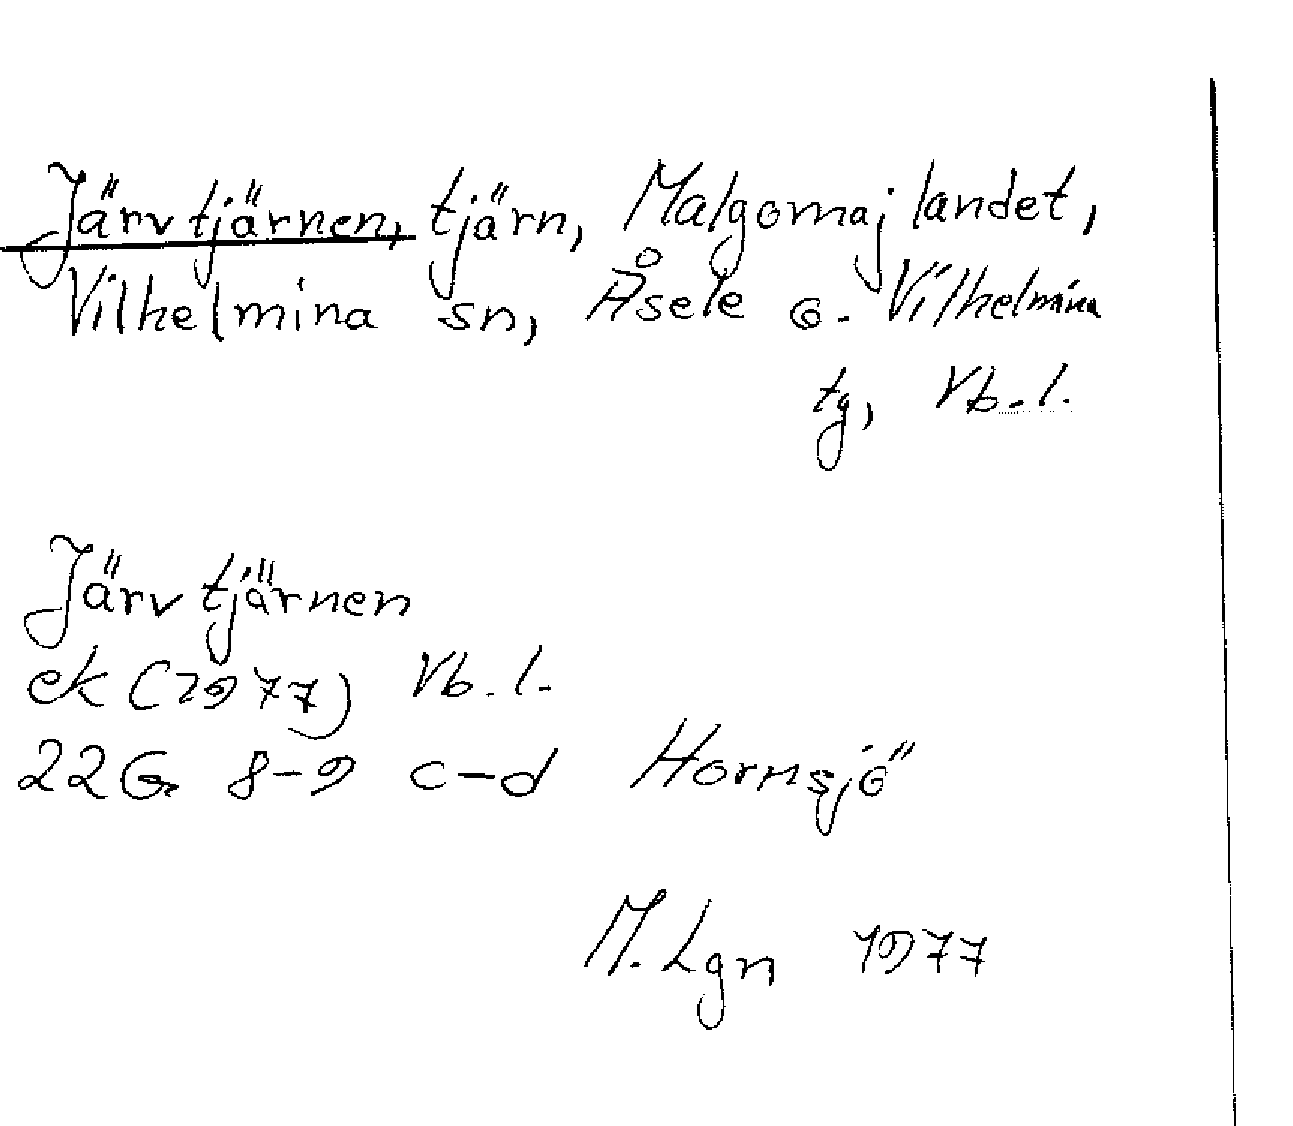 Järvtjärnen, tjärn, Malgomajlandet,
Vilhelmina sn, Åsele o. Vilhelmina
tg, Vb. l.
Järvtjärnen
ek (1977) Vb. l.
22G 8-9 c-d Hornsjö
M. Lgn 1977